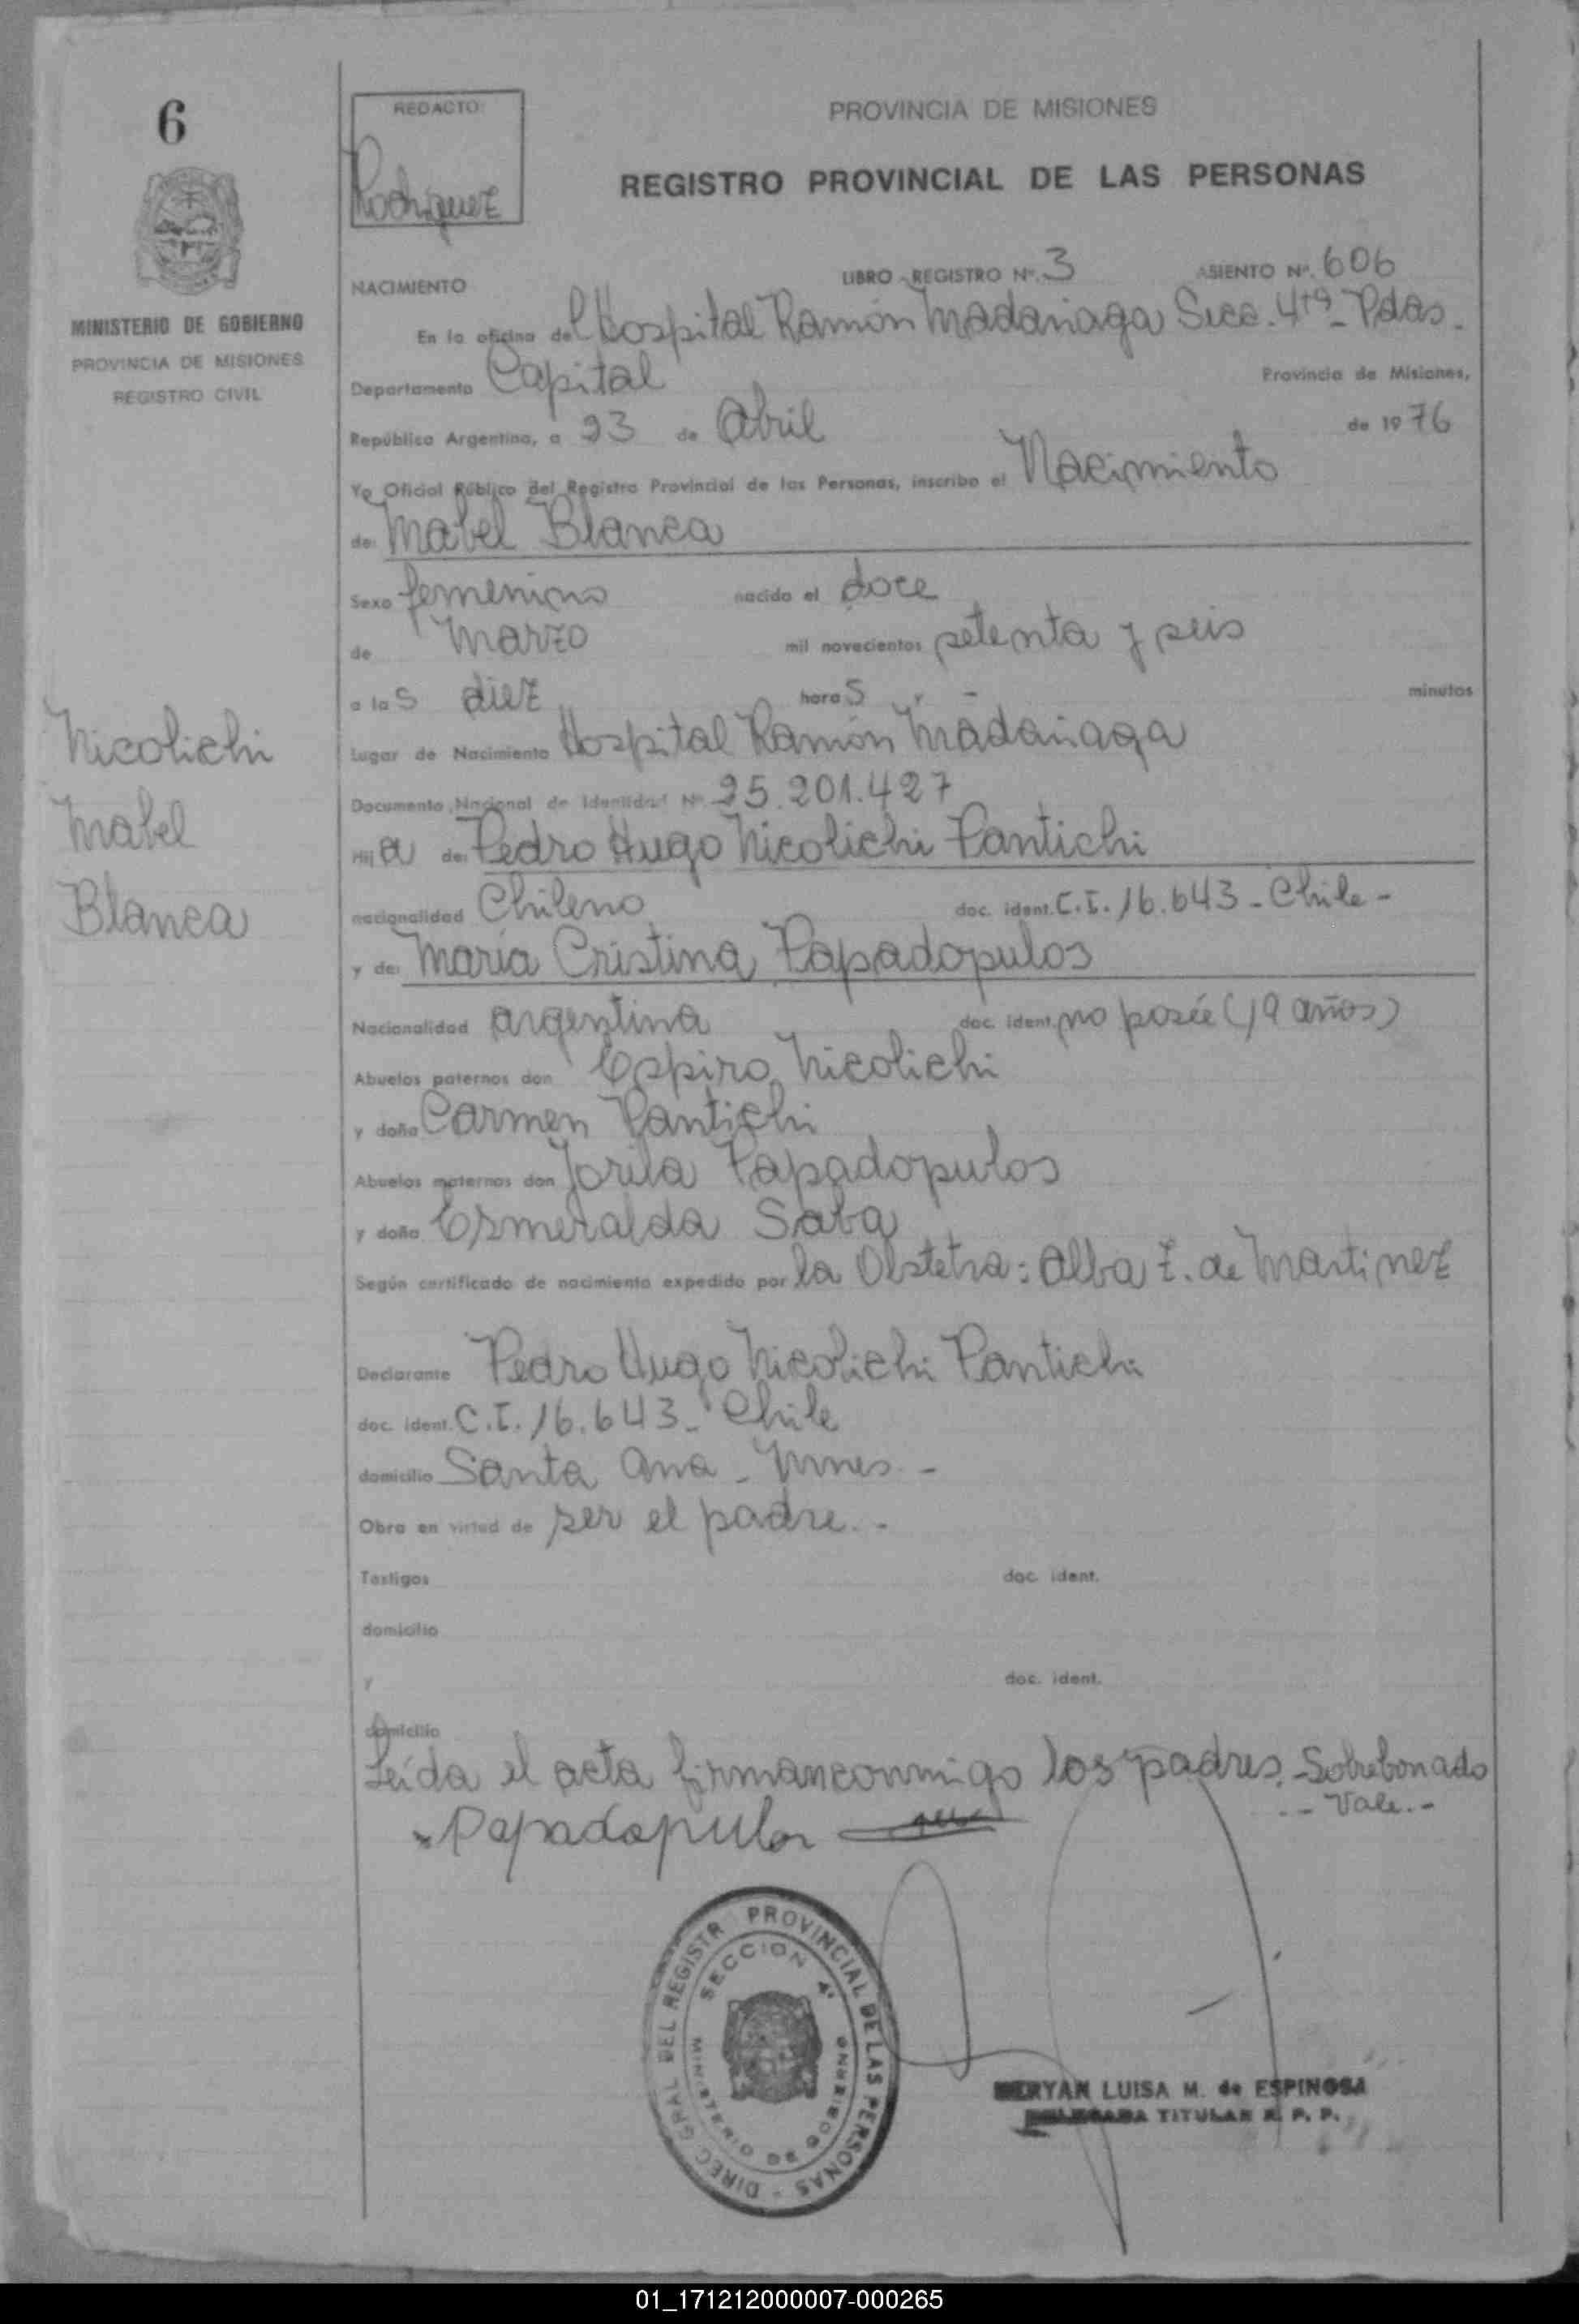 6
REDACTO:
Rodriguez
PROVINCIA DE MISIONES
REGISTRO PROVINCIAL DE LAS PERSONAS
MINISTERIO DE GOBIERNO
PROVINCIA DE MISIONES
REGISTRO CIVIL
NACIMIENTO LIBRO - REGISTRO Nº. 3 ASIENTO Nº. 606
En la oficina del Hospital Ramón Madariaga Secc. 4ta - Pdas.
Departamento Capital Provincia de Misiones,
República Argentina, a 23 de Abril de 1976
Yo Oficial Público del Registro Provincial de las Personas, inscribo el Nacimiento
de: Mabel Blanca
Sexo femenino nacido el doce
de Marzo mil novecientos setenta y seis
a las diez horas y - minutos
Lugar de Nacimiento Hospital Ramón Madariaga
Documento Nacional de Identidad Nº 25.201.427
Hija de: Pedro Hugo Nicolichi Pantichi
nacionalidad Chileno doc. ident. C.I. 16.643 - Chile -
y de: María Cristina Papadopulos
Nacionalidad argentina doc. ident. no posée (19 años)
Abuelos paternos don Espiro Nicolichi
y doña Carmen Pantichi
Abuelos maternos don Papadopulos
y doña Esmeralda Saba
Según certificado de nacimiento expedido por la Obstetra: Alba Z. de Martinez
Nicolichi
Mabel
Blanca
Declarante Pedro Hugo Nicolichi Pantichi
doc. ident. C.I. 16.643 - Chile
domicilio Santa Ana - Mnes. -
Obra en virtud de ser el padre. -
Testigos doc. ident.
domicilio
y doc. ident.
domicilio
Leída el acta firman conmigo los padres. - Sobrebonado
- Vale. -
Papadopulos
DIREC. GRAL DEL REGISTR. PROVINCIAL DE LAS PERSONAS -
SECCION 4ª
MINISTERIO DE GOBIERNO
LUISA M. de ESPINOSA
DELEGADA TITULAR R. P. P.
01_171212000007-000265